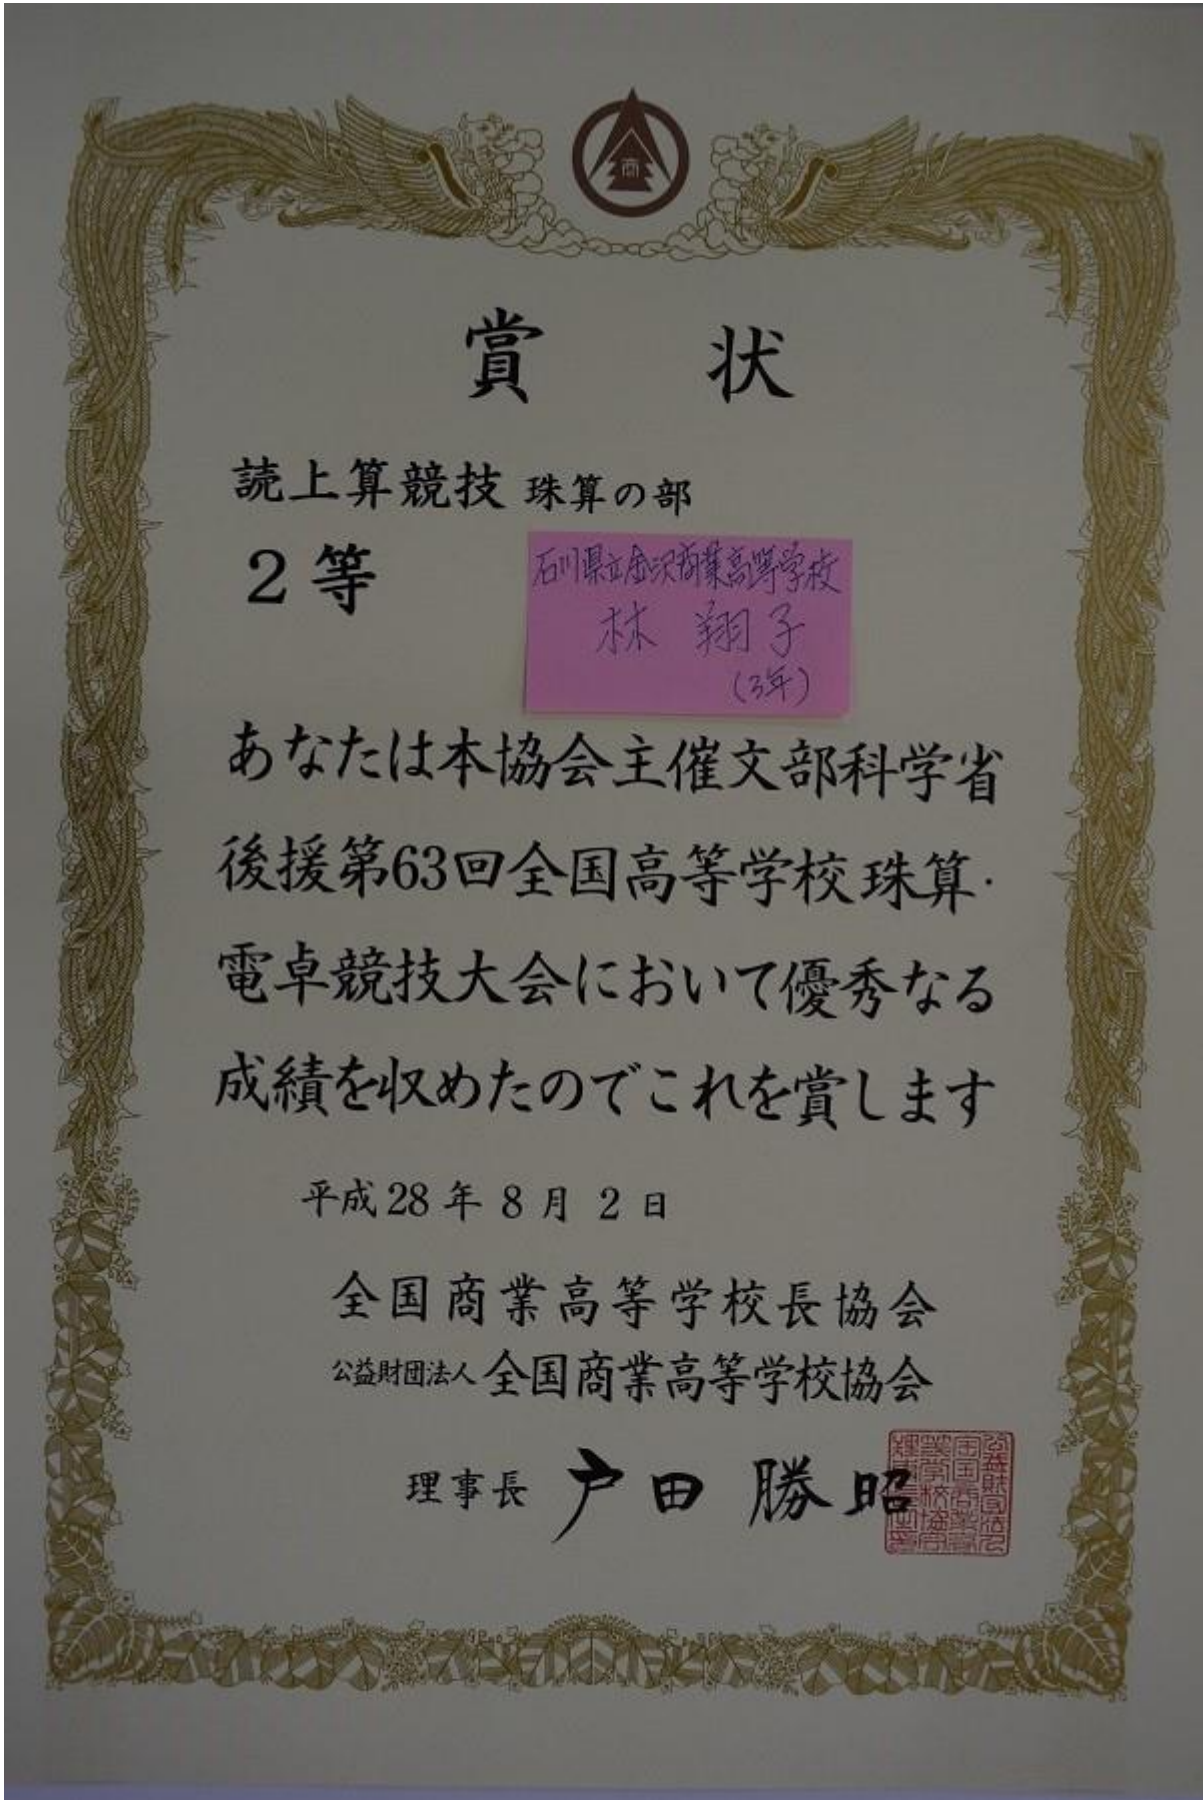 商
賞状
読上算競技 珠算の部
2等
石川県立金沢商業高等学校
林 翔子
(3年)
あなたは本協会主催文部科学省
後援第63回全国高等学校珠算・
電卓競技大会において優秀なる
成績を収めたのでこれを賞します
平成28年8月2日
全国商業高等学校長協会
公益財団法人 全国商業高等学校協会
理事長 戸田勝昭